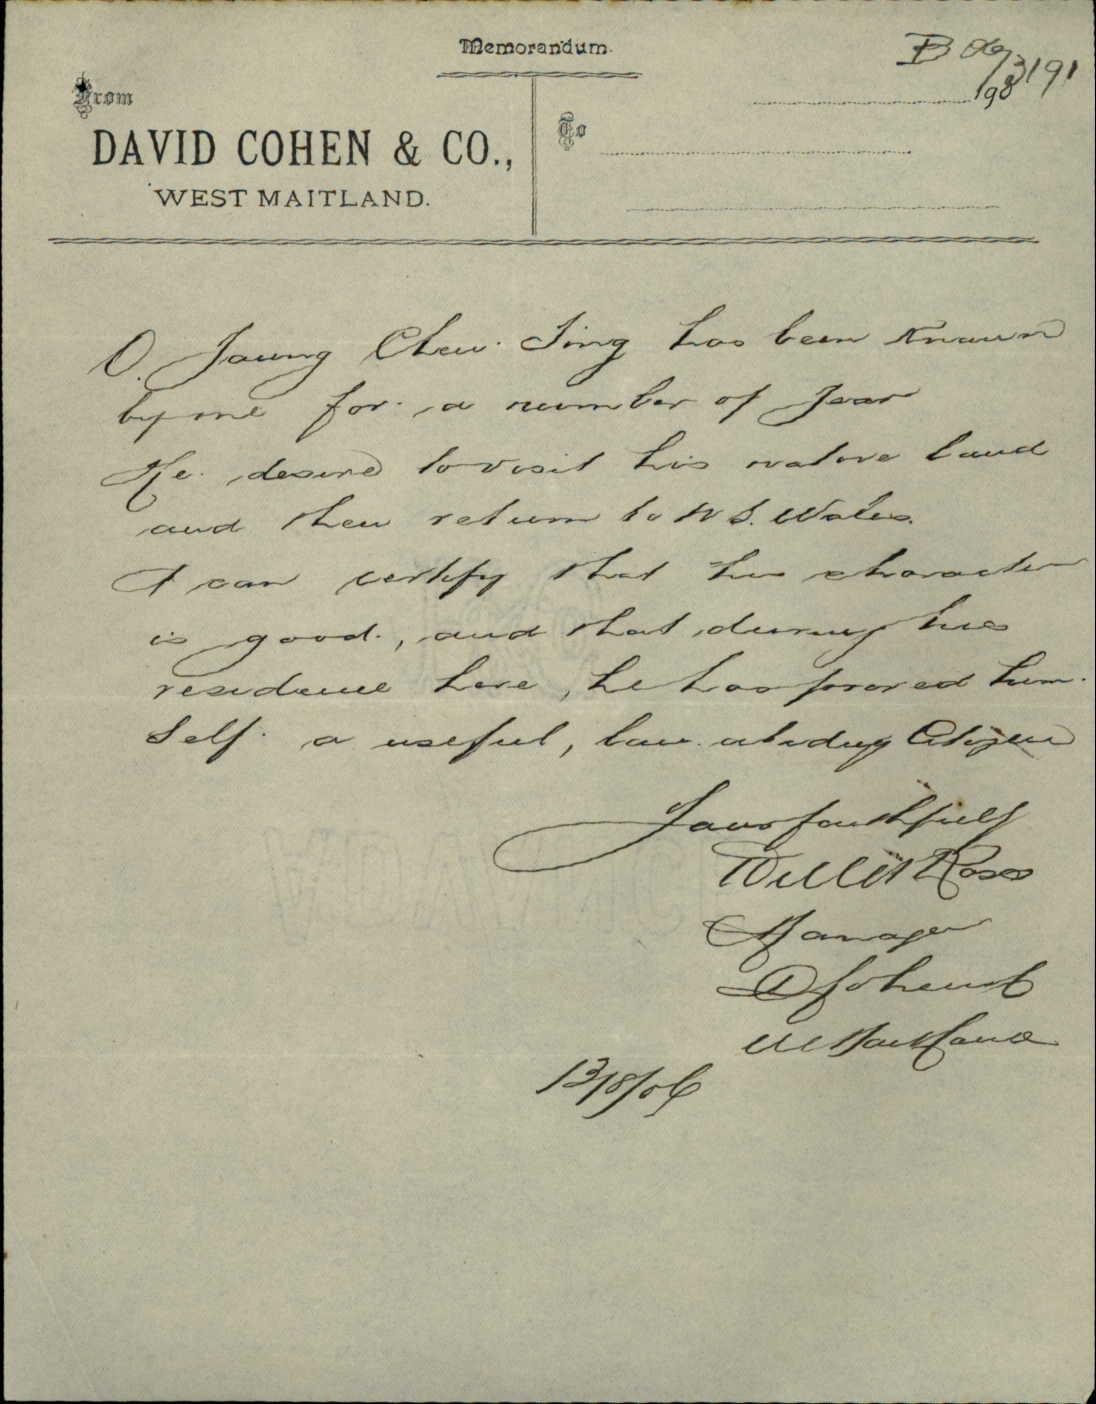 Memorandum.
B 06/3191
198
From
To
DAVID COHEN & CO.,
WEST MAITLAND.
O. Young Chew Sing has been known
by me for a number of year
He desire to visit his native land
and then return to N S. Wales.
I can certify that his character
is good, and that during his
residence here, he has proved him.
self a useful, law abiding Citizen
Yours faithfully
Ross
Manager
D Cohen & Co
W Maitland
13/8/06